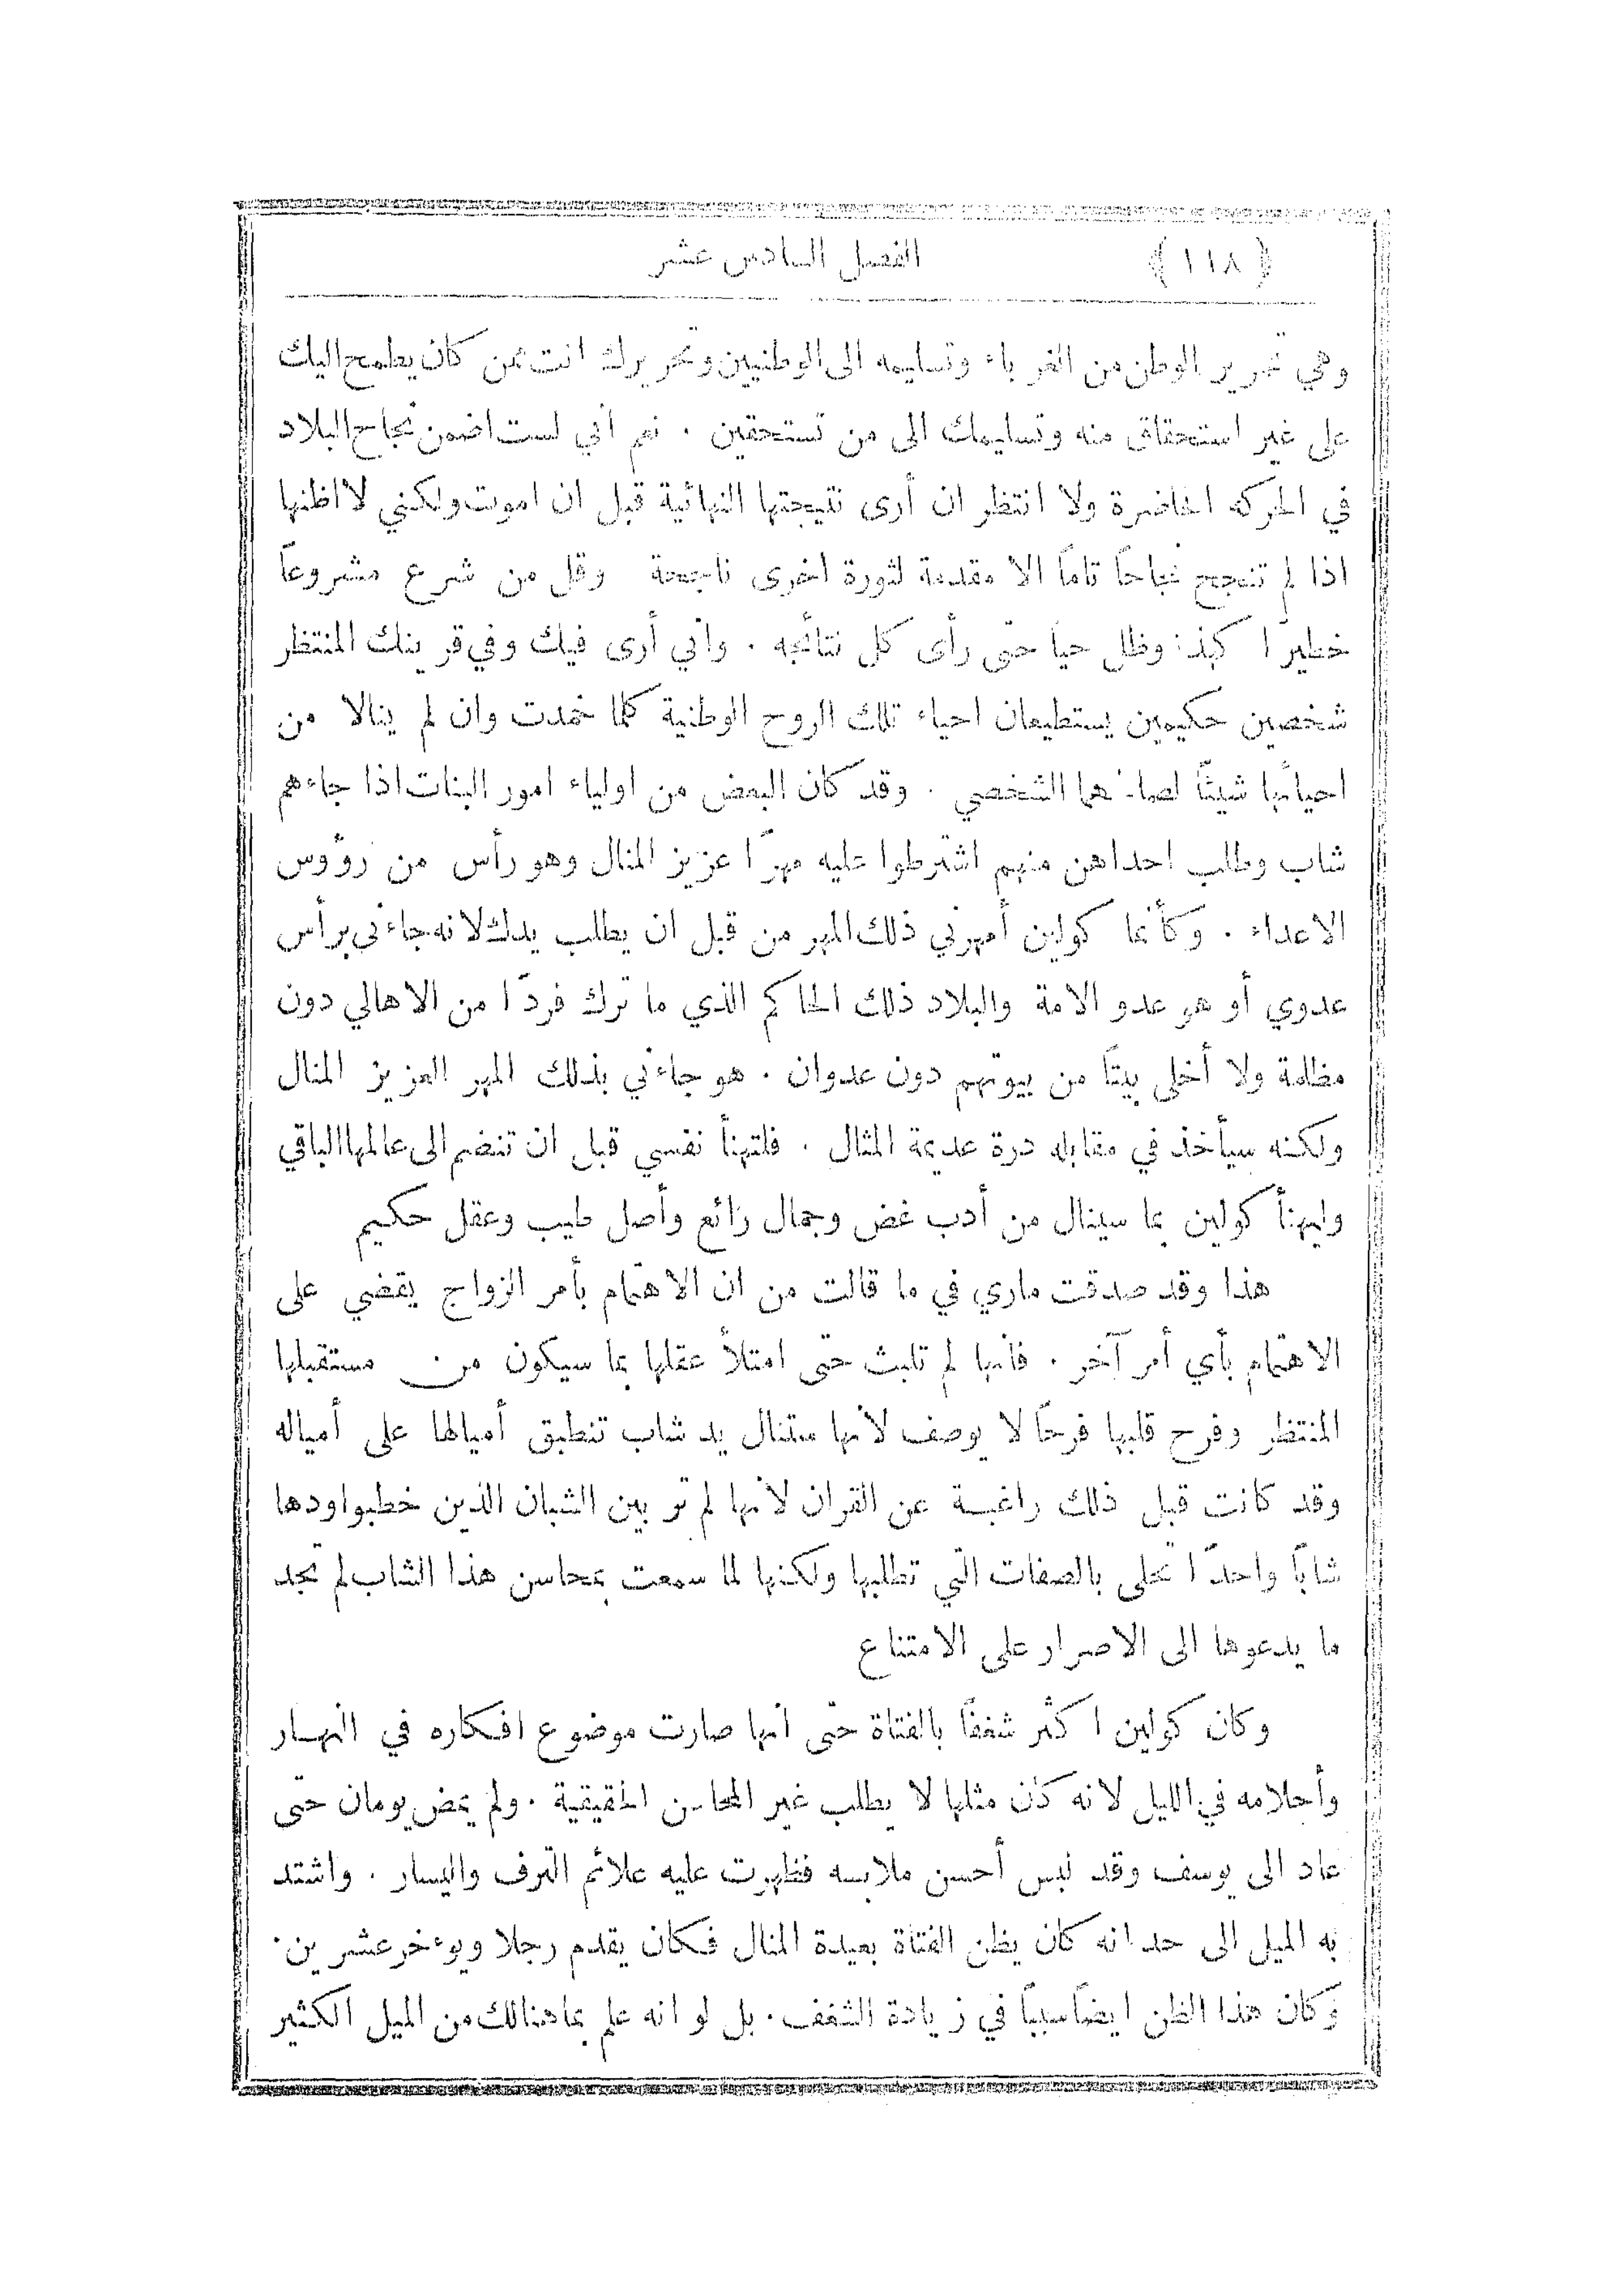 ﴿ ١١٨ ﴾ الفصل السادس عشر
وهي تحرير الوطن من الغرباء وتسليمه الى الوطنيين وتحريرك انت ممن كان يطمح اليك
على غير استحقاق منه وتسليمك الى من تستحقين . نعم اني لست اضمن نجاح البلاد
في الحركة الحاضرة ولا انتظر ان أرى نتيجتها النهائية قبل ان اموت ولكني لا اظنها
اذا لم تنجح نجاحاً تاماً الا مقدمة لثورة اخرى ناجحة وقل من شرع مشروعاً
خطيرًا كهذا وظل حياً حتى رأى كل نتائجه . واني أرى فيك وفي قرينك المنتظر
شخصين حكيمين يستطيعان احياء تلك الروح الوطنية كلما خمدت وان لم ينالا من
احيائها شيئاً لصالحهما الشخصي . وقد كان البعض من اولياء امور البنات اذا جاءهم
شاب وطلب احداهن منهم اشترطوا عليه مهرًا عزيز المنال وهو رأس من رؤوس
الاعداء . وكأنما كولين أمهرني ذلك المهر من قبل ان يطلب يدك لانه جاءني برأس
عدوي أو هو عدو الامة والبلاد ذلك الحاكم الذي ما ترك فردًا من الاهالي دون
مظلمة ولا أخلى بيتاً من بيوتهم دون عدوان . هو جاءني بذلك المهر العزيز المنال
ولكنه سيأخذ في مقابله درة عديمة المثال . فلتهنأ نفسي قبل ان تنضم الى عالمها الباقي
وليهنأ كولين بما سينال من أدب غض وجمال رائع وأصل طيب وعقل حكيم
هذا وقد صدقت ماري في ما قالت من ان الاهتمام بأمر الزواج يقضي على
الاهتمام بأي أمر آخر . فانها لم تلبث حتى امتلأ عقلها بما سيكون من مستقبلها
المنتظر وفرح قلبها فرحاً لا يوصف لانها ستنال يد شاب تنطبق أميالها على أمياله
وقد كانت قبل ذلك راغبة عن القران لانها لم تر بين الشبان الذين خطبوا ودها
شاباً واحدًا تحلى بالصفات التي تطلبها ولكنها لما سمعت بمحاسن هذا الشاب لم تجد
ما يدعوها الى الاصرار على الامتناع
وكان كولين اكثر شغفاً بالفتاة حتى انها صارت موضوع افكاره في النهار
وأحلامه في الليل لانه كان مثلها لا يطلب غير المحاسن الحقيقية . ولم يمض يومان حتى
عاد الى يوسف وقد لبس أحسن ملابسه فظهرت عليه علائم الترف واليسار . واشتد
به الميل الى حد انه كان يظن الفتاة بعيدة المنال فكان يقدم رجلا ويوءخر عشرين .
وكان هذا الظن ايضاً سبباً في زيادة الشغف . بل لو انه علم بما هنالك من الميل الكثير